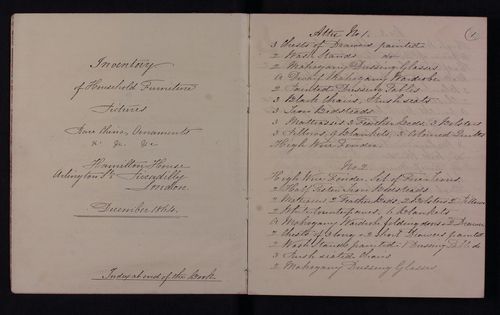 Inventory
of Household Furniture
Pictures
Rare China, Ornaments
&c &c &c
Hamilton House
Arlington St. Piccadilly
London.
December 1864.
Index at end of the book.
1
Attic No. 1.
3 Chests of Drawers painted
2 Wash Stands do
2 Mahogany Dressing Glasses
A Dwarf Mahogany Wardrobe
2 Painted Dressing Tables
3 Black Chairs, Rush seats
3 Iron Bedsteads
3 Mattrasses 3 Feather Beds, 3 Bolsters
3 Pillows, 9 Blankets, 3 Colored Quilts
High Wire Fender
No. 2
High Wire Fender, Set of Fire Irons.
2 Half Tester Iron Bedsteads
2 Mattrasses, 2 Feather Beds, 2 Bolsters, 2 Pillows
2 White Counterpanes, 6 Blankets
A Mahogany Wardrobe folding doors & Drawers
2 Chests of Long & 2 Short Drawers painted
2 Wash Stands painted, 1 Dressing Table do
3 Rush seated Chairs
2 Mahogany Dressing Glasses